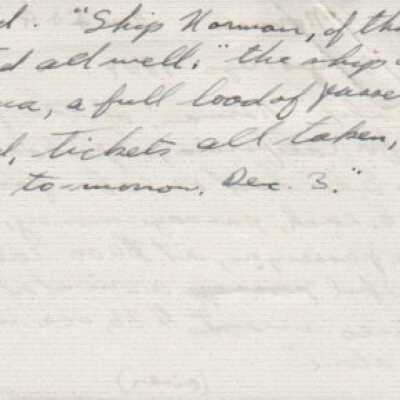 d. "Ship Norman, of th
d all well." the ship
a, a full load of passe
d, tickets all taken,
to-morrow. Dec. 3."